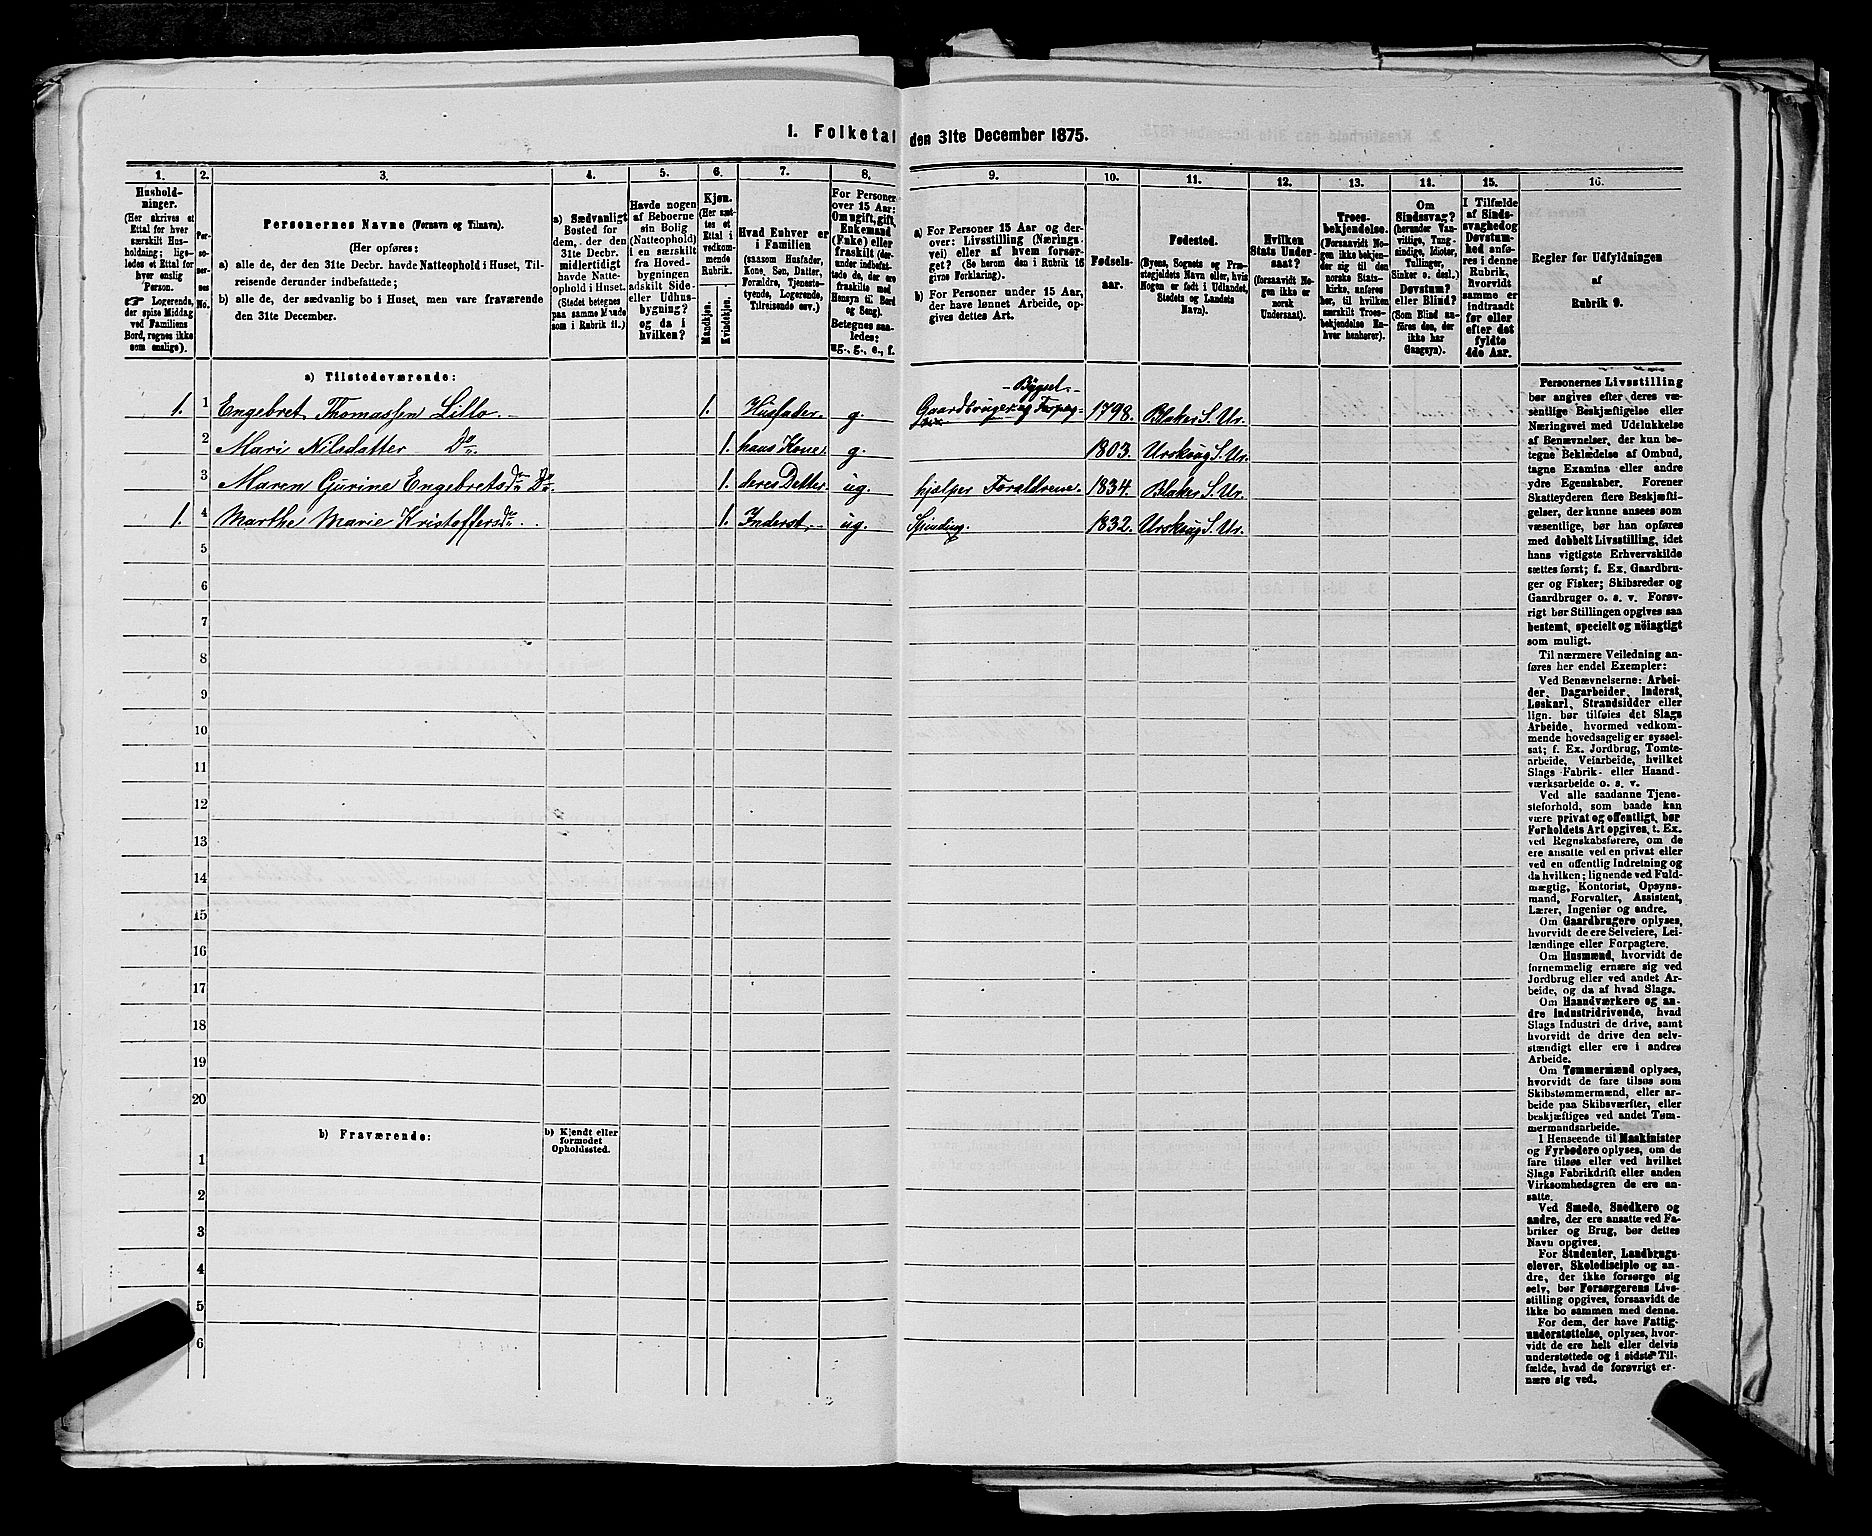 1. Folketal den 31te December 1875.
1. 2. 3. 4. 5. 6. 7. 8. 9. 10. 11. 12. 13. 14. 15. 16.
Hushold-
ninger.
(Her skrives et
Ettal for hver
særskilt Hus-
holdning; lige-
ledes et Ettal for
hver enslig
Person.
☞ Logerende,
der spise Middag
ved Familiens
Bord, regnes ikke
som enslige).
Per-
so-
ner-
nes
No.
Personernes Navne (Fornavn og Tilnavn).
(Her opføres:
a) alle de, der den 31te Decbr. havde Natteophold i Huset, Til-
reisende derunder indbefattede;
b) alle de, der sædvanlig bo i Huset, men vare fraværende
den 31te December.
a) Sædvanligt
Bosted for
dem, der den
31te Decbr.
midlertidigt
havde Natte-
ophold i Huset.
(Stedet betegnes
paa samme Maade
som i Rubrik 11.)
Havde nogen
af Beboerne
sin Bolig
(Natteophold)
i en særskilt
fra Hoved-
bygningen
adskilt Side-
eller Udhus-
bygning?
og da i
hvilken?
Kjøn.
(Her sæt-
tes et
Ettal i
vedkom-
mende
Rubrik.
Mandkjøn.
Kvindekjøn.
Hvad Enhver er
i Familien
(saasom Husfader,
Kone, Søn, Datter,
Forældre, Tjeneste-
tyende, Logerende,
Tilreisende osv.)
For Personer
over 15 Aar:
Om ugift, gift,
Enkemand
(Enke) eller
fraskilt (der-
under indbefat-
tede de, der ere
fraskilte med
Hensyn til Bord
og Seng).
Betegnes saa-
ledes:
ug., g., e., f.
a) For Personer 15 Aar og der-
over: Livsstilling (Nærings-
vei) eller af hvem forsør-
get? (Se herom den i Rubrik 16
givne Forklaring).
b) For Personer under 15 Aar,
der have lønnet Arbeide, op-
gives dettes Art.
Fødsels-
aar.
Fødested.
(Byens, Sognets og Præ-
stegjeldets Navn eller, hvis
Nogen er født i Udlandet,
Stedets og Landets
Navn).
Hvilken
Stats Under-
saat?
(forsaavidt No-
gen ikke er
norsk
Undersaat).
Troes-
bekjendelse.
(Forsaavidt No-
gen ikke bekjen-
der sig til den
norske Stats-
kirke, anføres
her, til hvilken
særskilt Troes-
bekjendelse En-
hver henhører).
Om
Sindssvag?
(herunder Van-
vittige, Tung-
sindige, Idioter,
Tullinger,
Sinker o. desl.)
Døvstum?
eller Blind?
(Som Blind an-
føres den, der
ikke har
Gangsyn).
I Tilfælde
af Sinds-
svaghed og
Døvstum-
hed anfø-
res i denne
Rubrik,
hvorvidt
samme er
indtraadt
før eller
efter det
fyldte
4de Aar.
Regler for Udfyldningen
af
Rubrik 9.
a) Tilstedeværende:
- Bygsel. -
1. 1 Engebret Thomassen Lillo. 1. Husfader. g. Gaardbruger og Forpag- 1798. Blaker S. Ur.
2 Mari Nilsdatter Do 1. hans Kone. g. 1803. Urskoug S. Ur.
3 Maren Gurine Engebretsdr Do. 1. deres Datter. ug. hjælper Forældrene. 1834. Blaker S. Ur.
1. 4 Marthe Marie Kristoffersdr. 1. Inderst. ug. Spinding. 1832. Urskoug S. Ur.
5
6
7
8
9
10
11
12
13
14
15
16
17
18
19
20
b) Fraværende:
b) Kjendt eller
formodet
Opholdssted.
1
2
3
4
5
6
Personernes Livsstilling
bør angives efter deres væ-
sentlige Beskjæftigelse eller
Næringsvei med Udelukkelse
af Benævnelser, der kun be-
tegne Beklædelse af Ombud,
tagne Examina eller andre
ydre Egenskaber. Forener
Skatteyderen flere Beskjæfti-
gelser, der kunne ansees som
væsentlige, bør han opføres
med dobbelt Livsstilling, idet
hans vigtigste Erhvervskilde
sættes først; f. Ex. Gaardbru-
ger og Fisker; Skibsreder og
Gaardbruger o. s. v. Forøv-
rigt bør Stillingen opgives saa
bestemt, specielt og nöiagtigt
som muligt.
Til nærmere Veiledning an-
føres her endel Exempler:
Ved Benævnelserne: Arbei-
der, Dagarbeider, Inderst,
Løskarl, Strandsidder eller
lign. bør tilføies det Slags
Arbeide, hvormed vedkom-
mende hovedsagelig er syssel-
sat; f. Ex. Jordbrug, Tomte-
arbeide, Veiarbeide, hvilket
Slags Fabrik- eller Haand-
værksarbeide o. s. v.
Ved alle saadanne Tjene-
steforhold, som baade kan
være privat og offentligt, bør
Forholdets Art opgives, t. Ex.
ved Regnskabsførere, om de
ere ansatte ved en privat eller
ved en offentlig Indretning og
da hvilken; lignende ved Fuld-
mægtig, Kontorist, Opsyns-
mand, Forvalter, Assistent,
Lærer, Ingeniør og andre.
Om Gaardbrugere oplyses,
hvorvidt de ere Selveiere, Lei-
lændinge eller Forpagtere.
Om Husmænd, hvorvidt de
fornemmelig ernære sig ved
Jordbrug eller ved andet Ar-
beide, og da af hvad Slags.
Om Haandværkere og an-
dre Industridrivende, hvad
Slags Industri de drive, samt
hvorvidt de drive den selv-
stændigt eller ere i andres
Arbeide.
Om Tømmermænd oplyses,
hvorvidt de fare tilsøs som
Skibstømmermænd, eller ar-
beide paa Skibsværfter, eller
beskjæftiges ved andet Tøm-
mermandsarbeide.
I Henseende til Maskinister
og Fyrbødere oplyses, om de
fare tilsøs eller ved hvilket
Slags Fabrikdrift eller anden
Virksomhedsgren de ere an-
satte.
Ved Smede, Snedkere og
andre, der ere ansatte ved Fa-
briker og Brug, bør dettes
Navn opgives.
For Studenter, Landbrugs-
elever, Skoledisciple og an-
dre, der ikke forsørge sig
selv, bør Forsørgerens Livs-
stilling opgives, forsaavidt de
ikke bo sammen med denne.
For dem, der have Fattig-
understøttelse, oplyses, hvor-
vidt de ere helt eller delvis
understøttede og i sidste Til-
fælde, hvad de forøvrigt er-
nære sig ved.